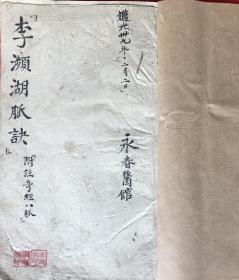 道光卅九年·二月二日
永春醫館
李瀕湖脈訣
附註奇經八脈